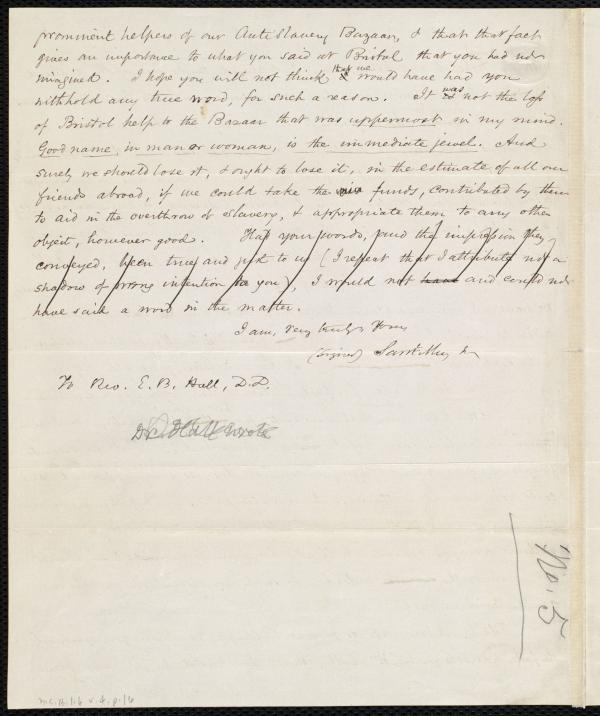 prominent helpers of our AntiSlavery Bazaar, & that that fact
gives an importance to what you said at Bristol that you had not
imagined. I hope you will not think that we would have had you
withhold any true word, for such a reason. It was not the loss
of Bristol help to the Bazaar that was uppermost in my mind.
Good name, in man or woman, is the immediate jewel. And
surely we should lose it, & ought to lose it, in the estimate of all our
friends abroad, if we could take the funds, contributed by them
to aid in the overthrow of slavery, & appropriate them to any other
object, however good. Had your words, and the impression they
conveyed, been true, and just to us (I repeat that I attribute not a
shadow of wrong intention to you), I would not have and could not
have said a word in the matter.
I am, very truly Yours
(signed) Saml. May Jr
To Rev. E. B. Hall, D.D.
Dr. Hall wrote
No. 5